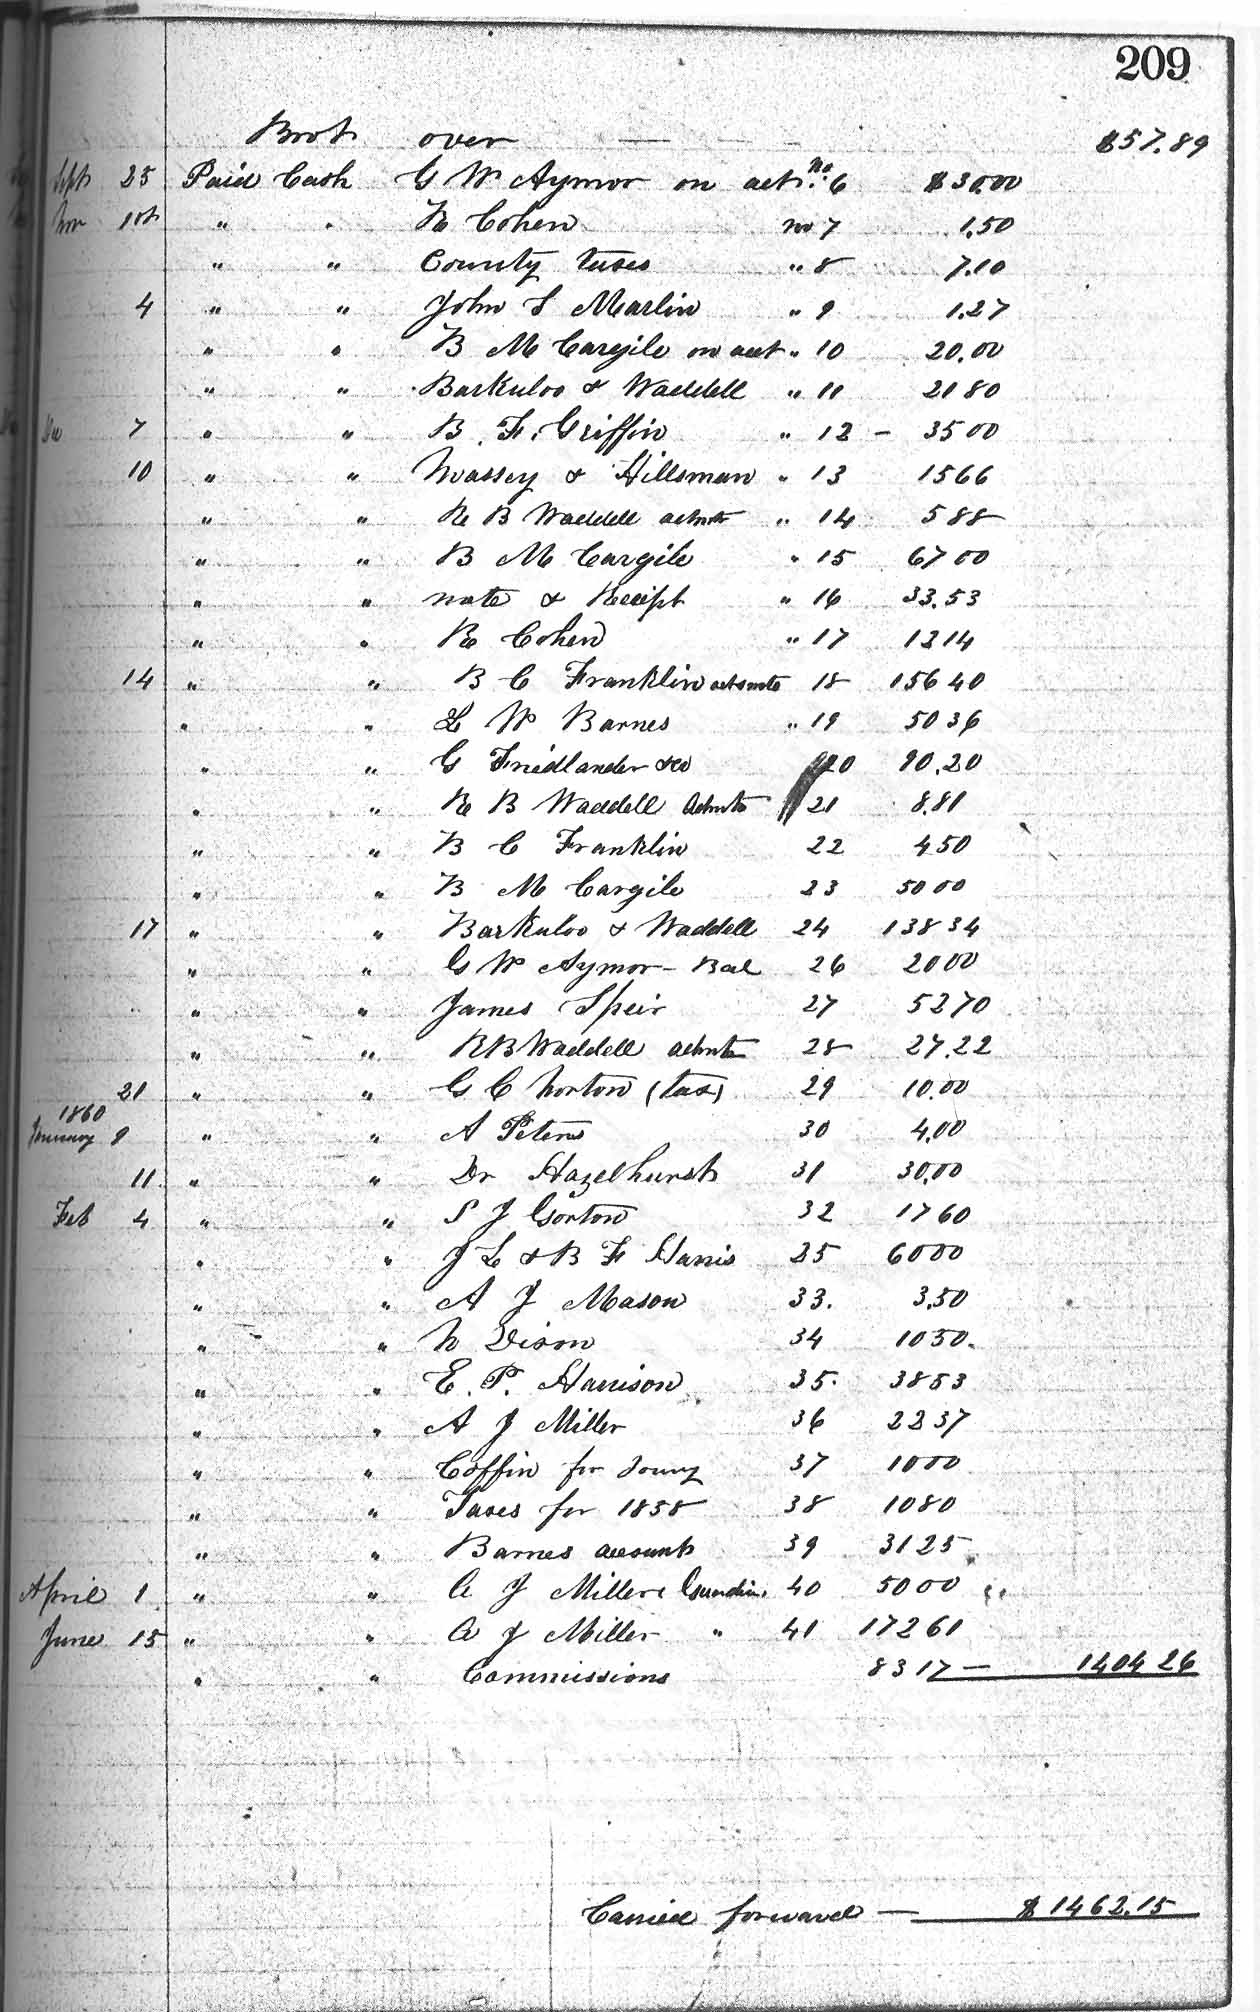 209
Brot over — — $57.89
Sept 25 Paid Cash G W Aymor on act No. 6 $30.00
Nov 1st " " R Cohen no 7 1.50
" " County taxes " 8 7.10
4 " " John S Marlin " 9 1.27
" " B M Cargile on act " 10 20.00
" " Barkuloo & Waddell " 11 21 80
De 7 " " B. F. Griffin " 12 – 35 00
10 " " Massey & Hillsman " 13 15 66
" " R B Waddell admtr " 14 5 88
" " B M Cargile " 15 67 00
" " note & Receipt " 16 33.53
" " R Cohen " 17 12 14
14 " " B C Franklin 18 156 40
" " L W Barnes " 19 50 36
" " G Friedlander & co 20 90.20
" " R B Waddell Admtr 21 8.81
" " B C Franklin 22 4 50
" " B M Cargile 23 50 00
17 " " Barkuloo & Waddell 24 138 34
" " G W Aymor – Bal 26 20 00
" " James Speir 27 52 70
" " R B Waddell admtr 28 27.22
21 " " G C Norton (tax) 29 10.00
1860
January 9 " " A Peters 30 4.00
11 " " Dr Hazelhurst 31 30.00
Feb 4 " " S J Gorton 32 17 60
" " J L & B F Harris 25 60 00
" " A J Mason 33. 3.50
" " N Dixon 34 10 50.
" " E. P. Harrison 35. 38 53
" " A J Miller 36 22 37
" " Coffin for 37 10 00
" " Taxes for 1858 38 10 80
" " Barnes account 39 31 25
April 1 " " A J Miller Guardian. 40 50 00
June 15 " " A J Miller " 41 172 61
" " Commissions 83 17 — 1404 26
Carried forward — $1462.15